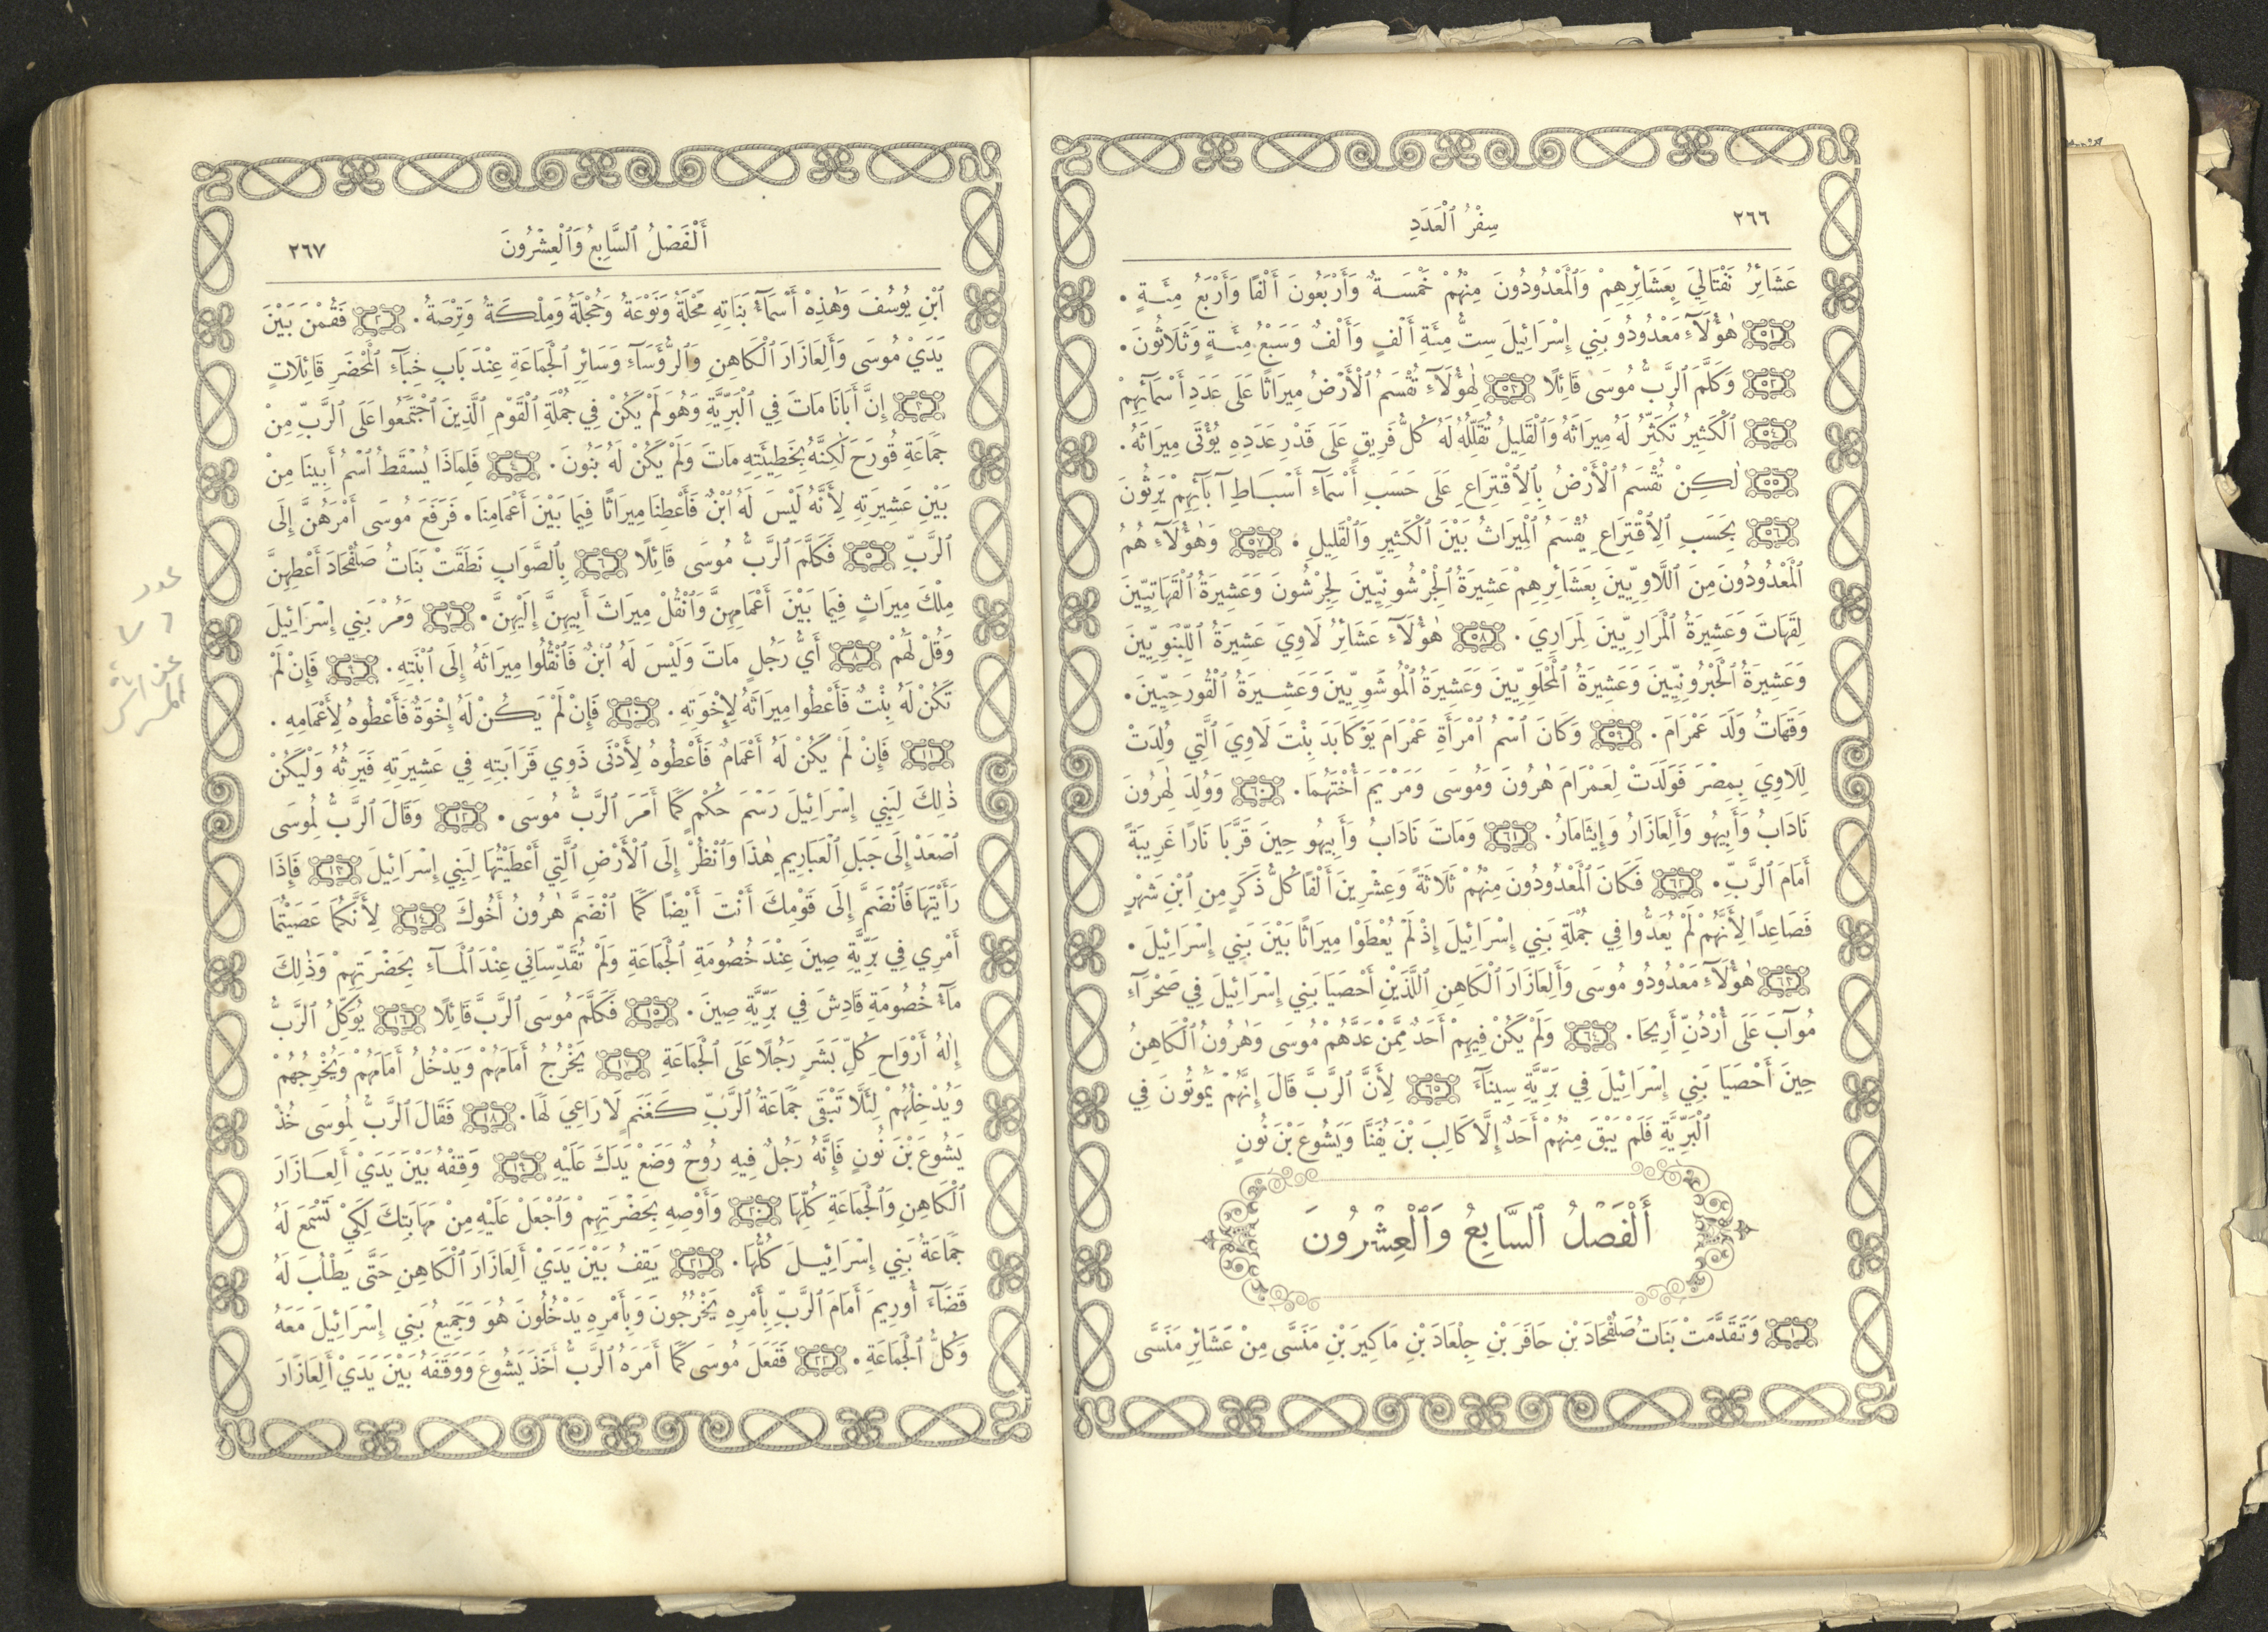 ٢٦٦
سِفْرُ ٱلْعَدَدِ
عَشَائِرُ نَفْتَالِيَ بِعَشَائِرِهِمْ وَٱلْمَعْدُودُونَ مِنْهُمْ خَمْسَةٌ وَأَرْبَعُونَ أَلْفًا وَأَرْبَعُ مِئَةٍ .
٥١ هٰؤُلَآءِ مَعْدُودُو بَنِي إِسْرَائِيلَ سِتُّ مِئَةِ أَلْفٍ وَأَلْفٌ وَسَبْعُ مِئَةٍ وَثَلَاثُونَ .
٥٢ وَكَلَّمَ ٱلرَّبُّ مُوسَى قَائِلًا ٥٣ لِهٰؤُلَآءِ تُقْسَمُ ٱلْأَرْضُ مِيرَاثًا عَلَى عَدَدِ أَسْمَآئِهِمْ
٥٤ ٱلْكَثِيرُ تُكَثِّرُ لَهُ مِيرَاثَهُ وَٱلْقَلِيلُ تُقَلِّلُهُ لَهُ كُلُّ فَرِيقٍ عَلَى قَدْرِ عَدَدِهِ يُؤْتَى مِيرَاثَهُ .
٥٥ لٰكِنْ تُقْسَمُ ٱلْأَرْضُ بِٱلِٱقْتِرَاعِ عَلَى حَسَبِ أَسْمَآءِ أَسْبَاطِ آبَآئِهِمْ يَرِثُونَ
٥٦ بِحَسَبِ ٱلِٱقْتِرَاعِ يُقْسَمُ ٱلْمِيرَاثُ بَيْنَ ٱلْكَثِيرِ وَٱلْقَلِيلِ . ٥٧ وَهٰؤُلَآءِ هُمُ
ٱلْمَعْدُودُونَ مِنَ ٱللَّاوِيِّينَ بِعَشَائِرِهِمْ عَشِيرَةُ ٱلْجِرْشُونِيِّينَ لِجِرْشُونَ وَعَشِيرَةُ ٱلْقَهَاتِيِّينَ
لِقَهَاتَ وَعَشِيرَةُ ٱلْمَرَارِيِّينَ لِمَرَارِيَ . ٥٨ هٰؤُلَآءِ عَشَائِرُ لَاوِيَ عَشِيرَةُ ٱللِّبْنَوِيِّينَ
وَعَشِيرَةُ ٱلْحَبْرُونِيِّينَ وَعَشِيرَةُ ٱلْمَحْلَوِيِّينَ وَعَشِيرَةُ ٱلْمُوشَوِيِّينَ وَعَشِيرَةُ ٱلْقُورَحِيِّينَ .
وَقَهَاتُ وَلَدَ عَمْرَامَ . ٥٩ وَكَانَ ٱسْمُ ٱمْرَأَةِ عَمْرَامَ يَوْكَابَدَ بِنْتَ لَاوِيَ ٱلَّتِي وُلِدَتْ
لِلَاوِيَ بِمِصْرَ فَوَلَدَتْ لِعَمْرَامَ هٰرُونَ وَمُوسَى وَمَرْيَمَ أُخْتَهُمَا . ٦٠ وَوُلِدَ لِهٰرُونَ
نَادَابُ وَأَبِيهُو وَأَلِعَازَارُ وَإِيثَامَارُ . ٦١ وَمَاتَ نَادَابُ وَأَبِيهُو حِينَ قَرَّبَا نَارًا غَرِيبَةً
أَمَامَ ٱلرَّبِّ . ٦٢ فَكَانَ ٱلْمَعْدُودُونَ مِنْهُمْ ثَلَاثَةً وَعِشْرِينَ أَلْفًا كُلُّ ذَكَرٍ مِنِ ٱبْنِ شَهْرٍ
فَصَاعِدًا لِأَنَّهُمْ لَمْ يُعَدُّوا فِي جُمْلَةِ بَنِي إِسْرَائِيلَ إِذْ لَمْ يُعْطَوْا مِيرَاثًا بَيْنَ بَنِي إِسْرَائِيلَ .
٦٣ هٰؤُلَآءِ مَعْدُودُو مُوسَى وَأَلِعَازَارَ ٱلْكَاهِنِ ٱللَّذَيْنِ أَحْصَيَا بَنِي إِسْرَائِيلَ فِي صَحْرَآءِ
مُوآبَ عَلَى أُرْدُنِّ أَرِيحَا . ٦٤ وَلَمْ يَكُنْ فِيهِمْ أَحَدٌ مِمَّنْ عَدَّهُمْ مُوسَى وَهٰرُونُ ٱلْكَاهِنُ
حِينَ أَحْصَيَا بَنِي إِسْرَائِيلَ فِي بَرِّيَّةِ سِينَآءَ ٦٥ لِأَنَّ ٱلرَّبَّ قَالَ إِنَّهُمْ يَمُوتُونَ فِي
ٱلْبَرِّيَّةِ فَلَمْ يَبْقَ مِنْهُمْ أَحَدٌ إِلَّا كَالِبَ بْنَ يَفُنَّا وَيَشُوعَ بْنَ نُونٍ
أَلْفَصْلُ ٱلسَّابِعُ وَٱلْعِشْرُونَ
١ وَتَقَدَّمَتْ بَنَاتُ صَلُفْحَادَ بْنِ حَافَرَ بْنِ جِلْعَادَ بْنِ مَاكِيرَ بْنِ مَنَسَّى مِنْ عَشَائِرِ مَنَسَّى
أَلْفَصْلُ ٱلسَّابِعُ وَٱلْعِشْرُونَ
٢٦٧
ٱبْنِ يُوسُفَ وَهٰذِهْ أَسْمَآءُ بَنَاتِهِ مَحْلَةُ وَنَوْعَةُ وَحُجْلَةُ وَمِلْكَةُ وَتِرْصَةُ . ٢ فَقُمْنَ بَيْنَ
يَدَيْ مُوسَى وَأَلِعَازَارَ ٱلْكَاهِنِ وَٱلرُّؤَسَآءِ وَسَائِرِ ٱلْجَمَاعَةِ عِنْدَ بَابِ خِبَآءِ ٱلْمَحْضَرِ قَائِلَاتٍ
٣ إِنَّ أَبَانَا مَاتَ فِي ٱلْبَرِّيَّةِ وَهُوَ لَمْ يَكُنْ فِي جُمْلَةِ ٱلْقَوْمِ ٱلَّذِينَ ٱجْتَمَعُوا عَلَى ٱلرَّبِّ مِنْ
جَمَاعَةِ قُورَحَ لٰكِنَّهُ بِخَطِيئَتِهِ مَاتَ وَلَمْ يَكُنْ لَهُ بَنُونَ . ٤ فَلِمَاذَا يُسْقَطُ ٱسْمُ أَبِينَا مِنْ
بَيْنِ عَشِيرَتِهِ لِأَنَّهُ لَيْسَ لَهُ ٱبْنٌ فَأَعْطِنَا مِيرَاثًا فِيمَا بَيْنَ أَعْمَامِنَا . فَرَفَعَ مُوسَى أَمْرَهُنَّ إِلَى
ٱلرَّبِّ ٥ فَكَلَّمَ ٱلرَّبُّ مُوسَى قَائِلًا ٦ بِٱلصَّوَابِ نَطَقَتْ بَنَاتُ صَلُفْحَادَ أَعْطِهِنَّ
مِلْكَ مِيرَاثٍ فِيمَا بَيْنَ أَعْمَامِهِنَّ وَٱنْقُلْ مِيرَاثَ أَبِيهِنَّ إِلَيْهِنَّ . ٧ وَمُرْ بَنِي إِسْرَائِيلَ
وَقُلْ لَهُمْ ٨ أَيُّ رَجُلٍ مَاتَ وَلَيْسَ لَهُ ٱبْنٌ فَٱنْقُلُوا مِيرَاثَهُ إِلَى ٱبْنَتِهِ . ٩ فَإِنْ لَمْ
تَكُنْ لَهُ بِنْتٌ فَأَعْطُوا مِيرَاثَهُ لِإِخْوَتِهِ . ١٠ فَإِنْ لَمْ يَكُنْ لَهُ إِخْوَةٌ فَأَعْطُوهُ لِأَعْمَامِهِ .
١١ فَإِنْ لَمْ يَكُنْ لَهُ أَعْمَامٌ فَأَعْطُوهُ لِأَدْنَى ذَوِي قَرَابَتِهِ فِي عَشِيرَتِهِ فَيَرِثُهُ وَلْيَكُنْ
ذٰلِكَ لِبَنِي إِسْرَائِيلَ رَسْمَ حُكْمٍ كَمَا أَمَرَ ٱلرَّبُّ مُوسَى . ١٢ وَقَالَ ٱلرَّبُّ لِمُوسَى
ٱصْعَدْ إِلَى جَبَلِ ٱلْعَبَارِيمِ هٰذَا وَٱنْظُرْ إِلَى ٱلْأَرْضِ ٱلَّتِي أَعْطَيْتُهَا لِبَنِي إِسْرَائِيلَ ١٣ فَإِذَا
رَأَيْتَهَا فَٱنْضَمَّ إِلَى قَوْمِكَ أَنْتَ أَيْضًا كَمَا ٱنْضَمَّ هٰرُونُ أَخُوكَ ١٤ لِأَنَّكُمَا عَصَيْتُمَا
أَمْرِي فِي بَرِّيَّةِ صِينَ عِنْدَ خُصُومَةِ ٱلْجَمَاعَةِ وَلَمْ تُقَدِّسَانِي عِنْدَ ٱلْمَآءِ بِحَضْرَتِهِمْ وَذٰلِكَ
مَآءُ خُصُومَةِ قَادِشَ فِي بَرِّيَّةِ صِينَ . ١٥ فَكَلَّمَ مُوسَى ٱلرَّبَّ قَائِلًا ١٦ يُوَكِّلُ ٱلرَّبُّ
إِلٰهُ أَرْوَاحِ كُلِّ بَشَرٍ رَجُلًا عَلَى ٱلْجَمَاعَةِ ١٧ يَخْرُجُ أَمَامَهُمْ وَيَدْخُلُ أَمَامَهُمْ وَيُخْرِجُهُمْ
وَيُدْخِلُهُمْ لِئَلَّا تَبْقَى جَمَاعَةُ ٱلرَّبِّ كَغَنَمٍ لَا رَاعِيَ لَهَا . ١٨ فَقَالَ ٱلرَّبُّ لِمُوسَى خُذْ
يَشُوعَ بْنَ نُونٍ فَإِنَّهُ رَجُلٌ فِيهِ رُوحٌ وَضَعْ يَدَكَ عَلَيْهِ ١٩ وَقِفْهُ بَيْنَ يَدَيْ أَلِعَازَارَ
ٱلْكَاهِنِ وَٱلْجَمَاعَةِ كُلِّهَا ٢٠ وَأَوْصِهِ بِحَضْرَتِهِمْ وَٱجْعَلْ عَلَيْهِ مِنْ مَهَابَتِكَ لِكَيْ تَسْمَعَ لَهُ
جَمَاعَةُ بَنِي إِسْرَائِيلَ كُلُّهَا . ٢١ يَقِفُ بَيْنَ يَدَيْ أَلِعَازَارَ ٱلْكَاهِنِ حَتَّى يَطْلُبَ لَهُ
قَضَآءَ أُورِيمَ أَمَامَ ٱلرَّبِّ بِأَمْرِهِ يَخْرُجُونَ وَبِأَمْرِهِ يَدْخُلُونَ هُوَ وَجَمِيعُ بَنِي إِسْرَائِيلَ مَعَهُ
وَكُلُّ ٱلْجَمَاعَةِ . ٢٢ فَفَعَلَ مُوسَى كَمَا أَمَرَهُ ٱلرَّبُّ أَخَذَ يَشُوعَ وَوَقَفَهُ بَيْنَ يَدَيْ أَلِعَازَارَ